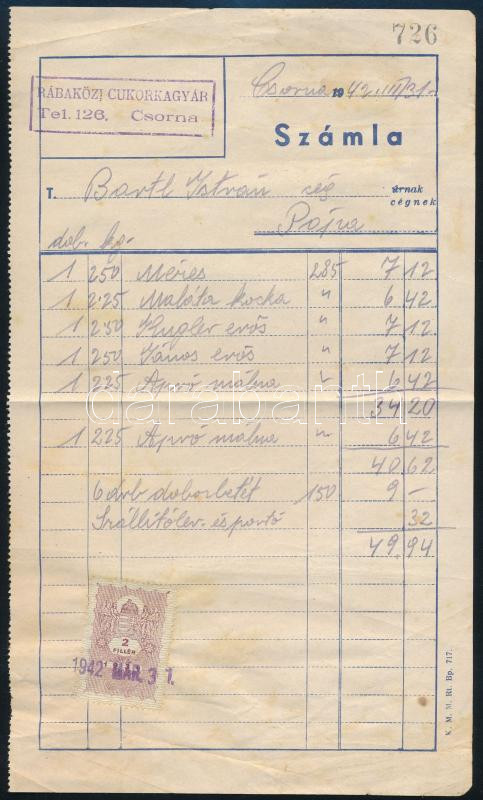 726
RÁBAKÖZI CUKORKAGYÁR
Tel. 126. Csorna
Csorna 1942. III/31.
Számla
T. Bartl István cég úrnak cégnek
Pajra
dob. kg.
1 2 50 Méces 285 7 12
1 2 25 Maláta kocka " 6 42
1 2 50 Kugler erős " 7 12
1 2 50 János erős " 7 12
1 2 25 Apró málna " 6 42
34 20
1 2 25 Apró málna " 6 42
40 62
6 drb dobozbetét 150 9 –
Szállítólev. és portó 32
49 94
2
FILLÉR
1942 MÁR. 31.
K. M. M. Rt. Bp. 717.
darabanth